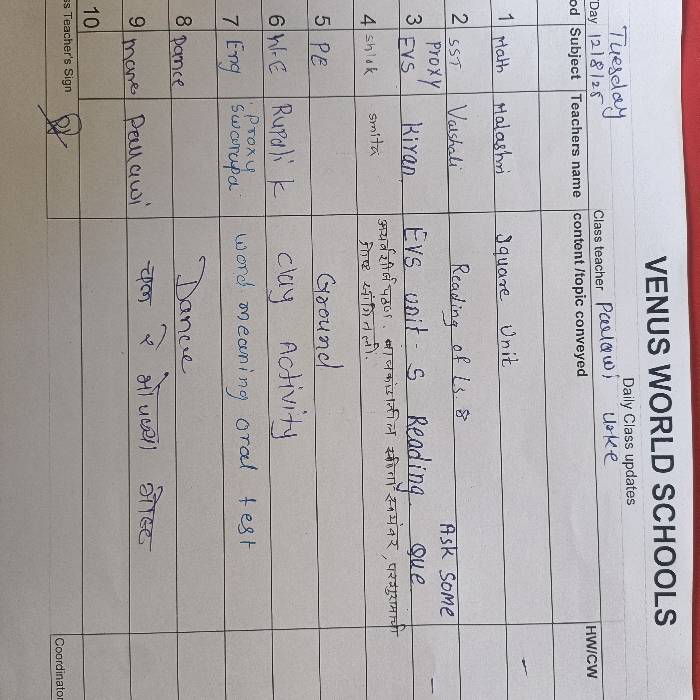 VENUS WORLD SCHOOLS
Daily Class updates
Tuesday
Day 12/8/25 Class teacher Pallawi
od Subject Teachers name content/topic conveyed HW/CW
1 Math Malashri Square Unit -
2 SST Vaishali Reading of Ls. 8
Proxy Ask some
3 EVS Kiran EVS Unit - 5 Reading. que -
4 Shlok Smita अथर्वशीर्ष पठण.
गोष्ट सांगितली.
5 PE Ground
6 W.E Rupali K Clay Activity
7 Eng Proxy Swarupa word meaning oral test
8 Dance Dance
9 Mara Pallawi चल रे भोपळ्या गोष्ट
10
ss Teacher's Sign Coordinator